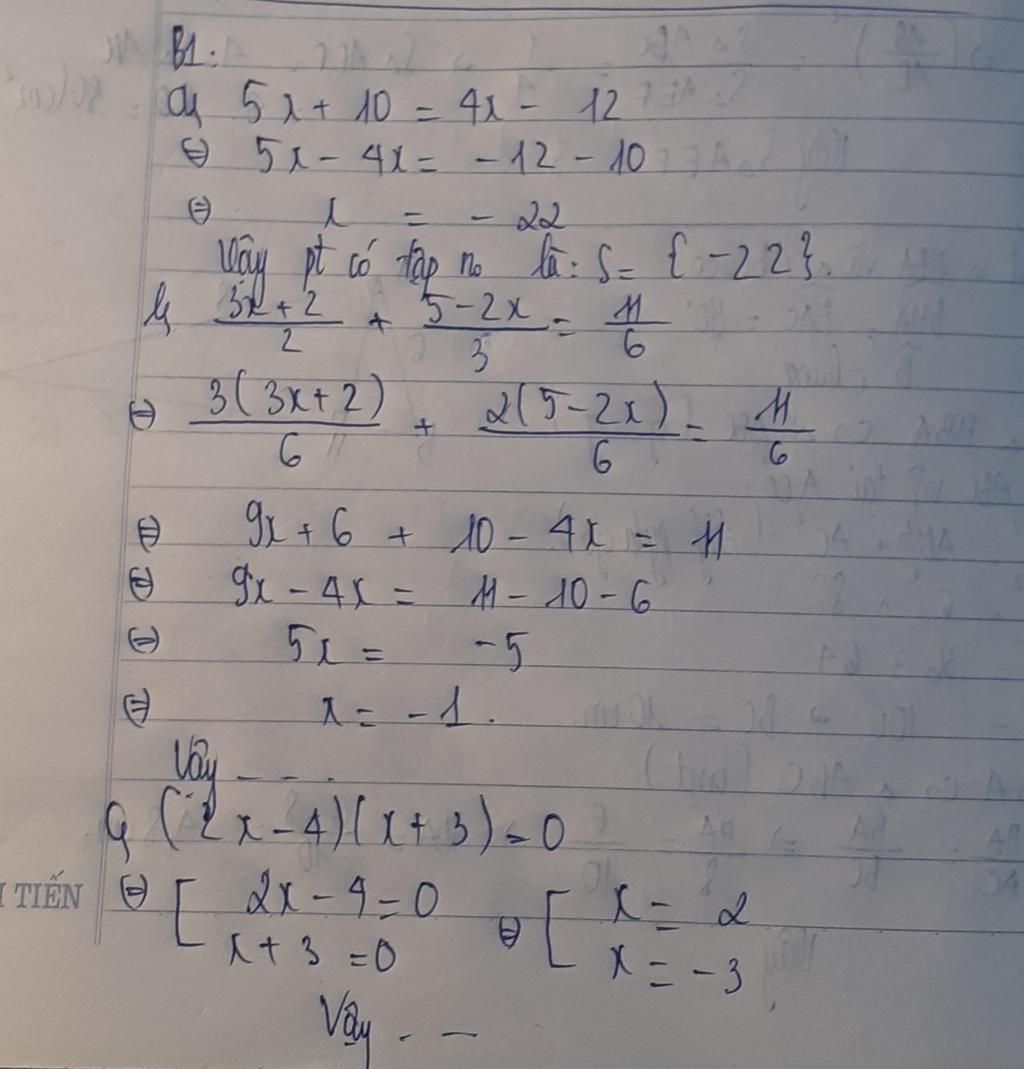 B1:
a, 5x + 10 = 4x - 12
⇔ 5x - 4x = -12 - 10
⇔ x = - 22
Vậy pt có tập no là: S = {-22}.
b, 3x+2/2 + 5-2x/3 = 11/6
⇔ 3(3x+2)/6 + 2(5-2x)/6 = 11/6
⇔ 9x + 6 + 10 - 4x = 11
⇔ 9x - 4x = 11 - 10 - 6
⇔ 5x = -5
⇔ x = -1.
Vậy - - .
c, (2x-4)(x+3) = 0
TIẾN
⇔ [ 2x - 4 = 0 ⇔ [ x = 2
x + 3 = 0 x = -3
Vậy - -